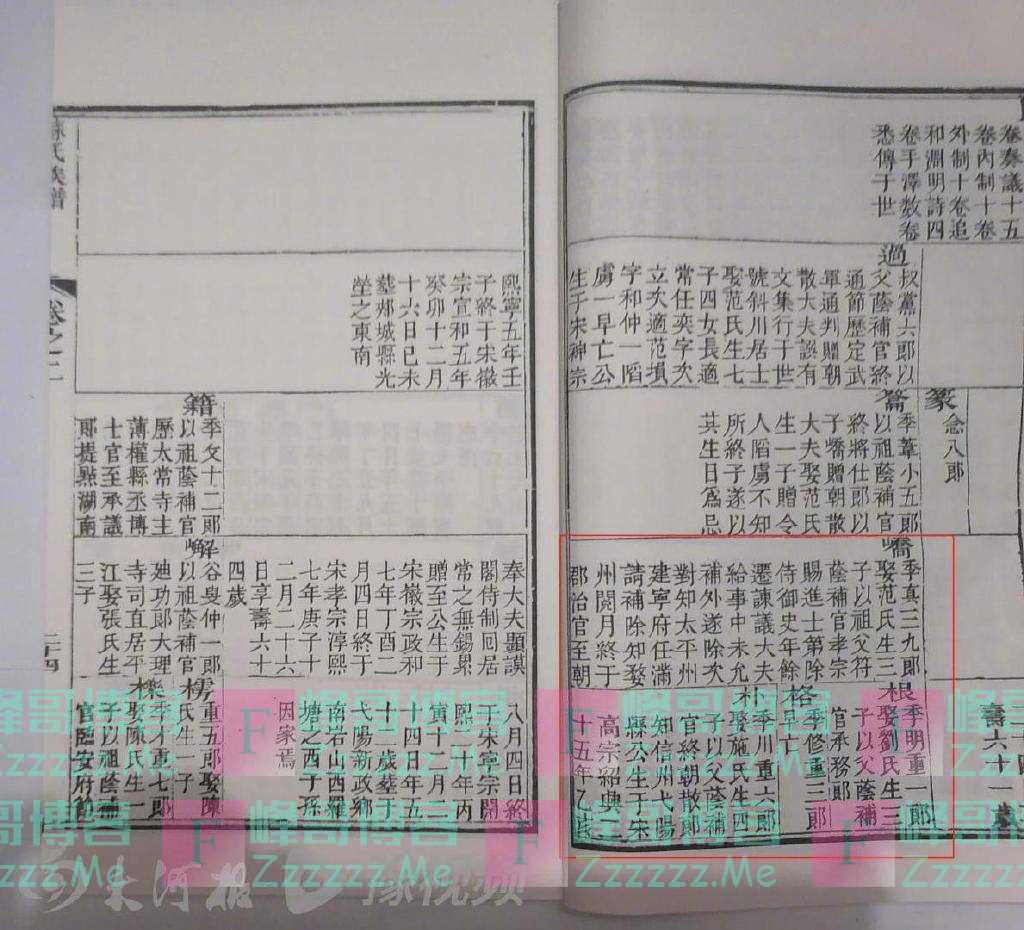 卷奏議十五
卷內制十卷
外制十卷追
和淵明詩四
卷手澤數卷
悉傳于世
過
叔黨六郎以
父蔭補官終
通節歷定武
單通判贈朝
散大夫誤有
文集行于世
號斜川居士
娶范氏生七
子四女長適
常任奕字次
立次適范塤
字和仲一陷
虜一早亡公
生于宋神宗
篆
念八郎
籥
季葦小五郎
以祖蔭補官
終將仕郎以
子嶠贈朝散
大夫娶范氏
生一子贈令
人陷虜不知
所終子遂以
其生日爲忌
嶠
季真三九郎
娶范氏生三
子以祖父符
蔭補官孝宗
賜進士第除
侍御史年餘
遷諫議大夫
給事中未允
補外遂除次
對知太平州
建寧府任滿
請補除知婺
州閱月終于
郡治官至朝
根
季明重一郎
娶劉氏生三
子以父蔭補
官承務郎
格
季修重三郎
早亡
朴
季川重六郎
娶施氏生四
子以父蔭補
官終朝散郎
知信州弋陽
縣公生于宋
高宗紹興二
十五年乙亥
壽六十一歲
孫氏族譜
卷之二
二十四
熙寧五年壬
子終于宋徽
宗宣和五年
癸卯十二月
十六日己未
葬郟城縣光
塋之東南
籍
季文十二郎
以祖蔭補官
歷太常寺主
薄權縣丞博
士官至承議
郎提點湖南
奉大夫顯謨
閣待制回居
常之無錫累
贈至公生于
宋徽宗政和
七年丁酉二
月四日終于
宋孝宗淳熙
七年庚子十
二月二十六
日享壽六十
四歲
八月四日終
于宋寧宗開
熙十年丙
寅十二月三
十四日年五
十二歲葬于
弋陽新政鄉
南岩山西羅
塘之西子孫
因家焉
嶰
谷叟仲一郎
以祖蔭補官
廸功郎大理
寺司直居平
江娶張氏生
三子
樗
重五郎娶陳
氏生一子
櫟
季才重七郎
娶陳氏生一
子以祖蔭補
官臨安府節
峰哥博客
Zzzzzz.Me
F